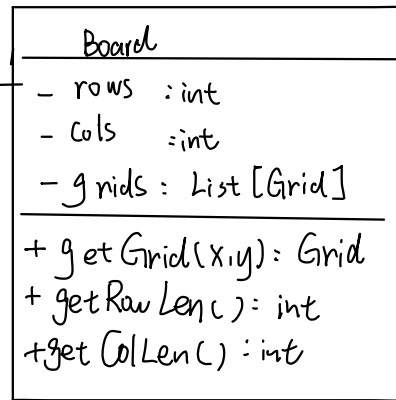 Board
- rows : int
- cols : int
- grids : List [Grid]
+ getGrid(x,y) : Grid
+ getRowLen() : int
+getColLen() : int